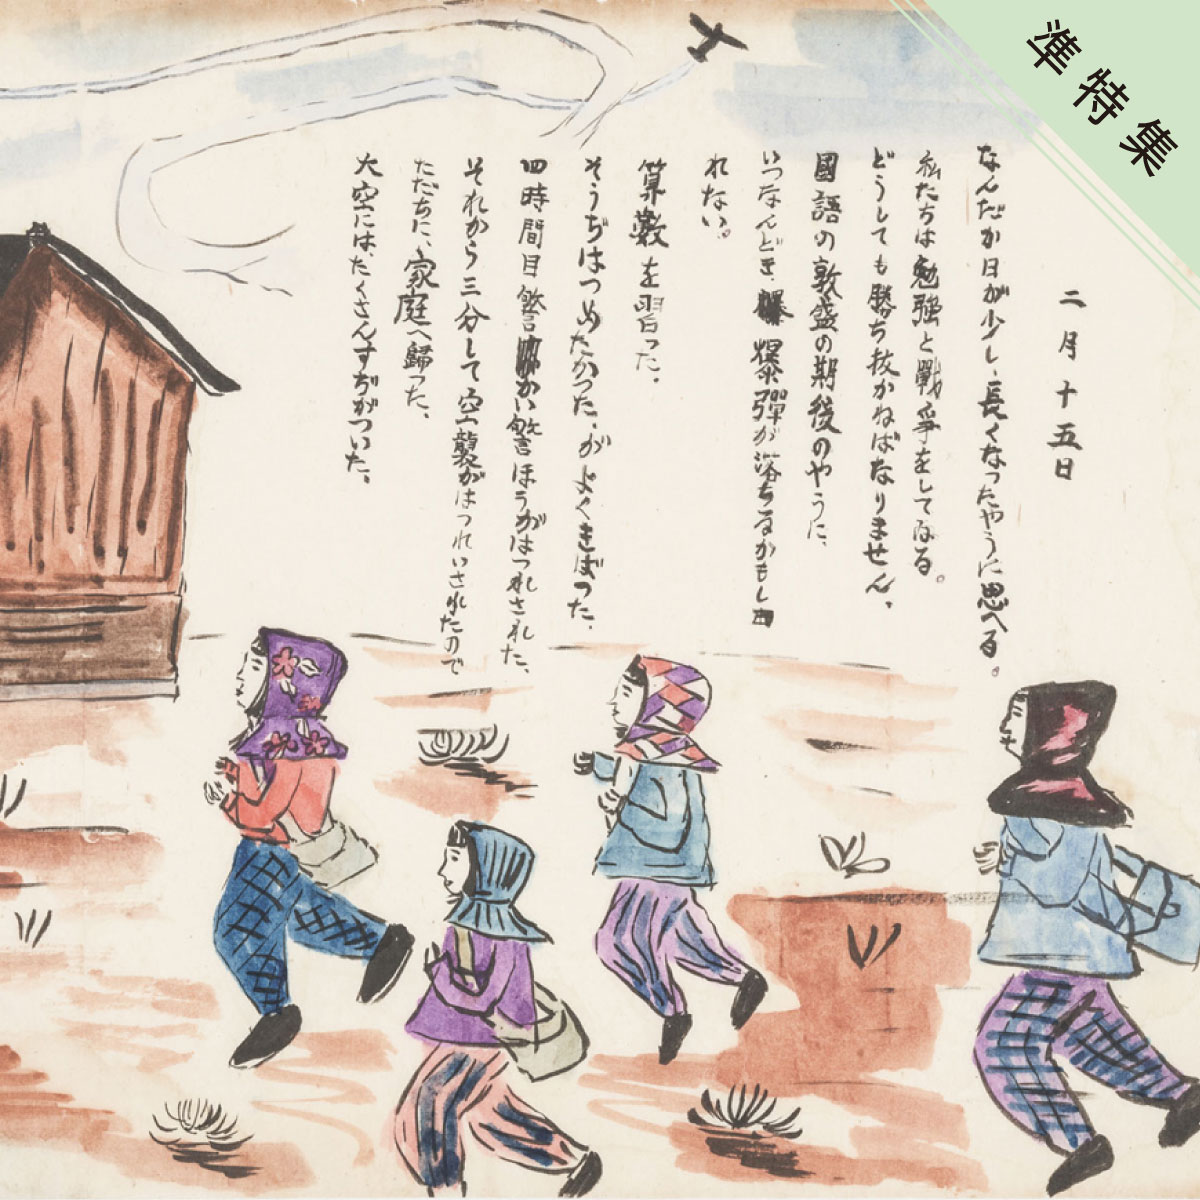 準特集
二月十五日
なんだか日が少し、長くなったやうに思へる。
私たちは勉強と戰爭をしてゐる。
どうしても勝ち抜かねばなりません、
國語の敦盛の期後のやうに、
いつなんどき、爆彈が落ちるかもし
れない。
算数を習った、
そうぢはつめたかった、がよくきばった、
四時間目警かい警ほうがはつれされた、
それから三分して空襲がはつれいされたので
ただちに、家庭へ歸った、
大空には、たくさんすぢがついた、